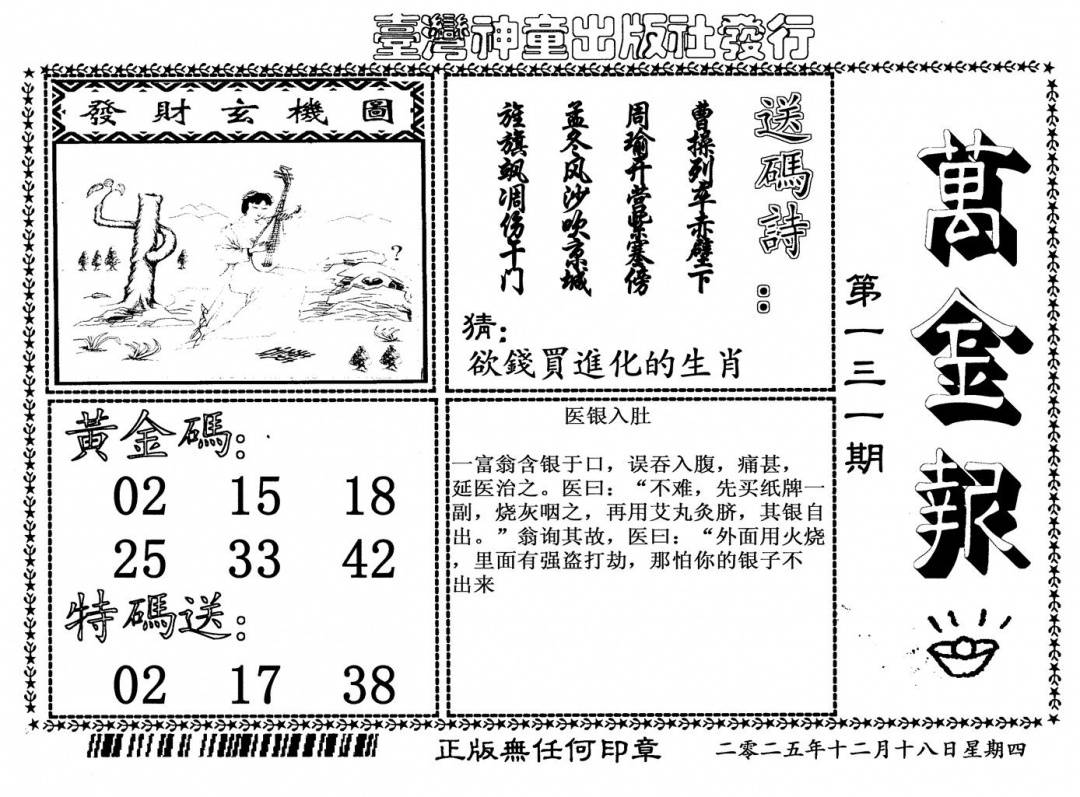 臺灣神童出版社發行
萬金報
第一三一期
發財玄機圖
?
送碼詩：
曹操列车赤壁下
周瑜开营紫塞傍
孟冬风沙吹京城
旌旗飒凋伤千门
猜：
欲錢買進化的生肖
黃金碼：
02 15 18
25 33 42
特碼送：
02 17 38
医银入肚
一富翁含银于口，误吞入腹，痛甚，
延医治之。医曰：“不难，先买纸牌一
副，烧灰咽之，再用艾丸灸脐，其银自
出。”翁询其故，医曰：“外面用火烧
，里面有强盗打劫，那怕你的银子不
出来
正版無任何印章
二零二五年十二月十八日星期四